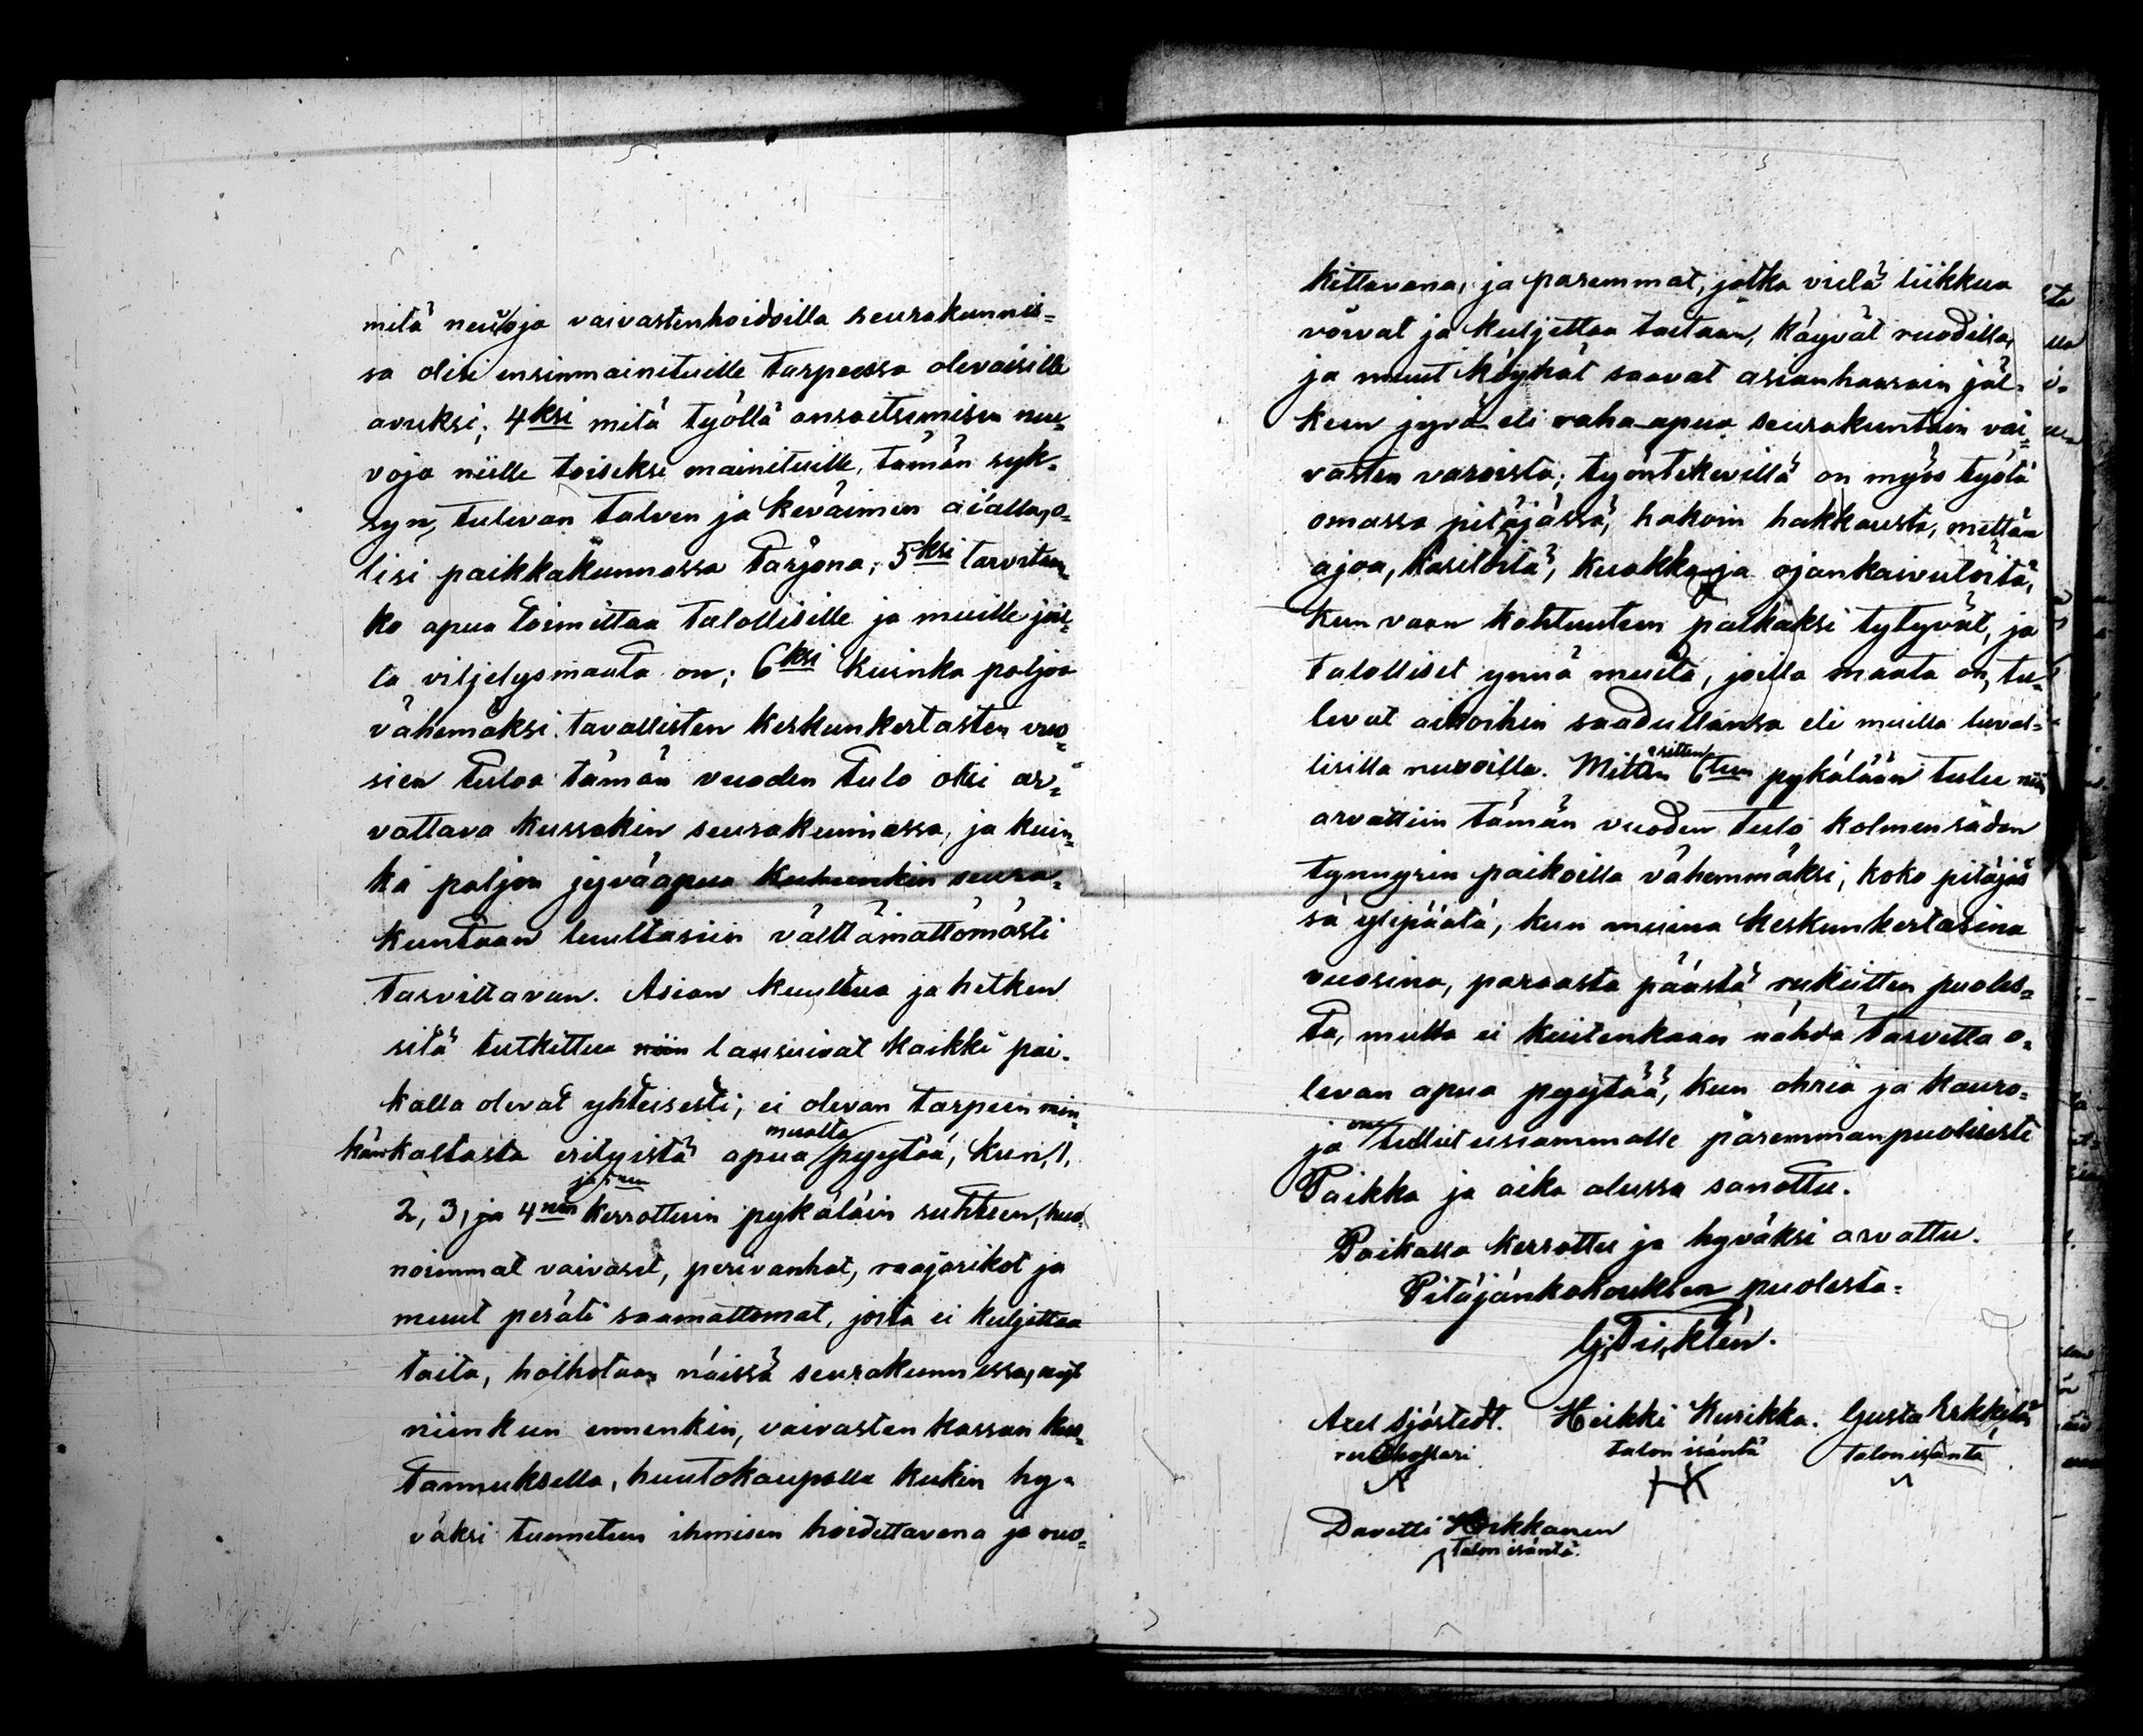 mitä neuvoja vaivastenhoidoilla seurakunnis=
sa olisi ensinmainituille tarpeessa olevaisille
avuksi; 4ksi mitä työllä ansaitsemisen neu=
voja niille toiseksi mainituille, tämän syk=
syn, tulevan talven ja keväimen aialla, o=
lisi paikkakunnassa tarjona; 5ksi tarvitaan=
ko apua toimittaa talollisille ja muille joil=
la viljelysmaata on; 6ksi kuinka paljoa
vähemäksi tavallisten keskunkertasten vuo=
sien tuloa tämän vuoden tulo olisi ar=
vattava kussakin seurakunnassa, ja kuin=
ka paljon jyväapua kuhunkin seura=
kuntaan luultasiin välttämättömästi
tarvittavan. Asian kuultua ja hetken
sitä tutkittua niin lausuivat kaikki pai=
kalla olevat yhteisesti, ei olevan tarpeen min=
känkaltasta erityistä apua muolta pyytää, kun, 1,
2, 3, ja 4nen ja 5nen kerrottuin pykäläin suhteen, huo=
noimmat vaivaset, perivanhat, raajarikot ja
muut peräti saamattomat, joita ei kuljettaa
taita, holhotaan näissä seurakunnissa, nyt
niinkun ennenkin, vaivasten kassan kus=
tannuksella, huutokaupalla kukin hy=
väksi tunnetun ihmisen hoidettavana ja ruo=
kittavana, ja paremmat, jotka vielä liikkua
voivat ja kuljettaa taitaan, käyvät ruodilla,
ja muut köyhät saavat asianhaarain jäl=
keen jyvä eli raha-apua seurakuntain vai=
vasten varoista; työntekevillä on myös työtä
omassa pitäjässä, hakoin hakkausta, mettän
ajoa, käsitöitä, kuokka ja ojankaivutöitä,
kun vaan kohtuuteen palkaksi tytyvät, ja
talolliset ynnä muita, joilla maata on, tu=
levat aikoihin saadullansa eli muilla luval=
lisilla neuvoilla. Mitten sitten 6teen pykälään tulee niin
arvattiin tämän vuoden tulo kolmensäden
tynnyrin paikoilla vähemmäksi, koko pitäjäs
sä ylipäätä, kun muina keskunkertasina
vuosina, paraasta päästä rukiitten puoles=
ta, mutta ei kuitenkaan nähdä tarvetta o=
levan apua pyytää, kun ohria ja kauro=
ja on tullut usiammalle paremmanpuolisesti
Paikka ja aika alussa sanottu.
Paikalla kerrottu ja hyväksi arvattu.
Pitäjänkokouksen puolesta.
Axel Sjöstedt. Heikki Kurikka. Gusta Erkkilä
talon isäntä talon isäntä
Davetti Heikkanen
talon isäntä.